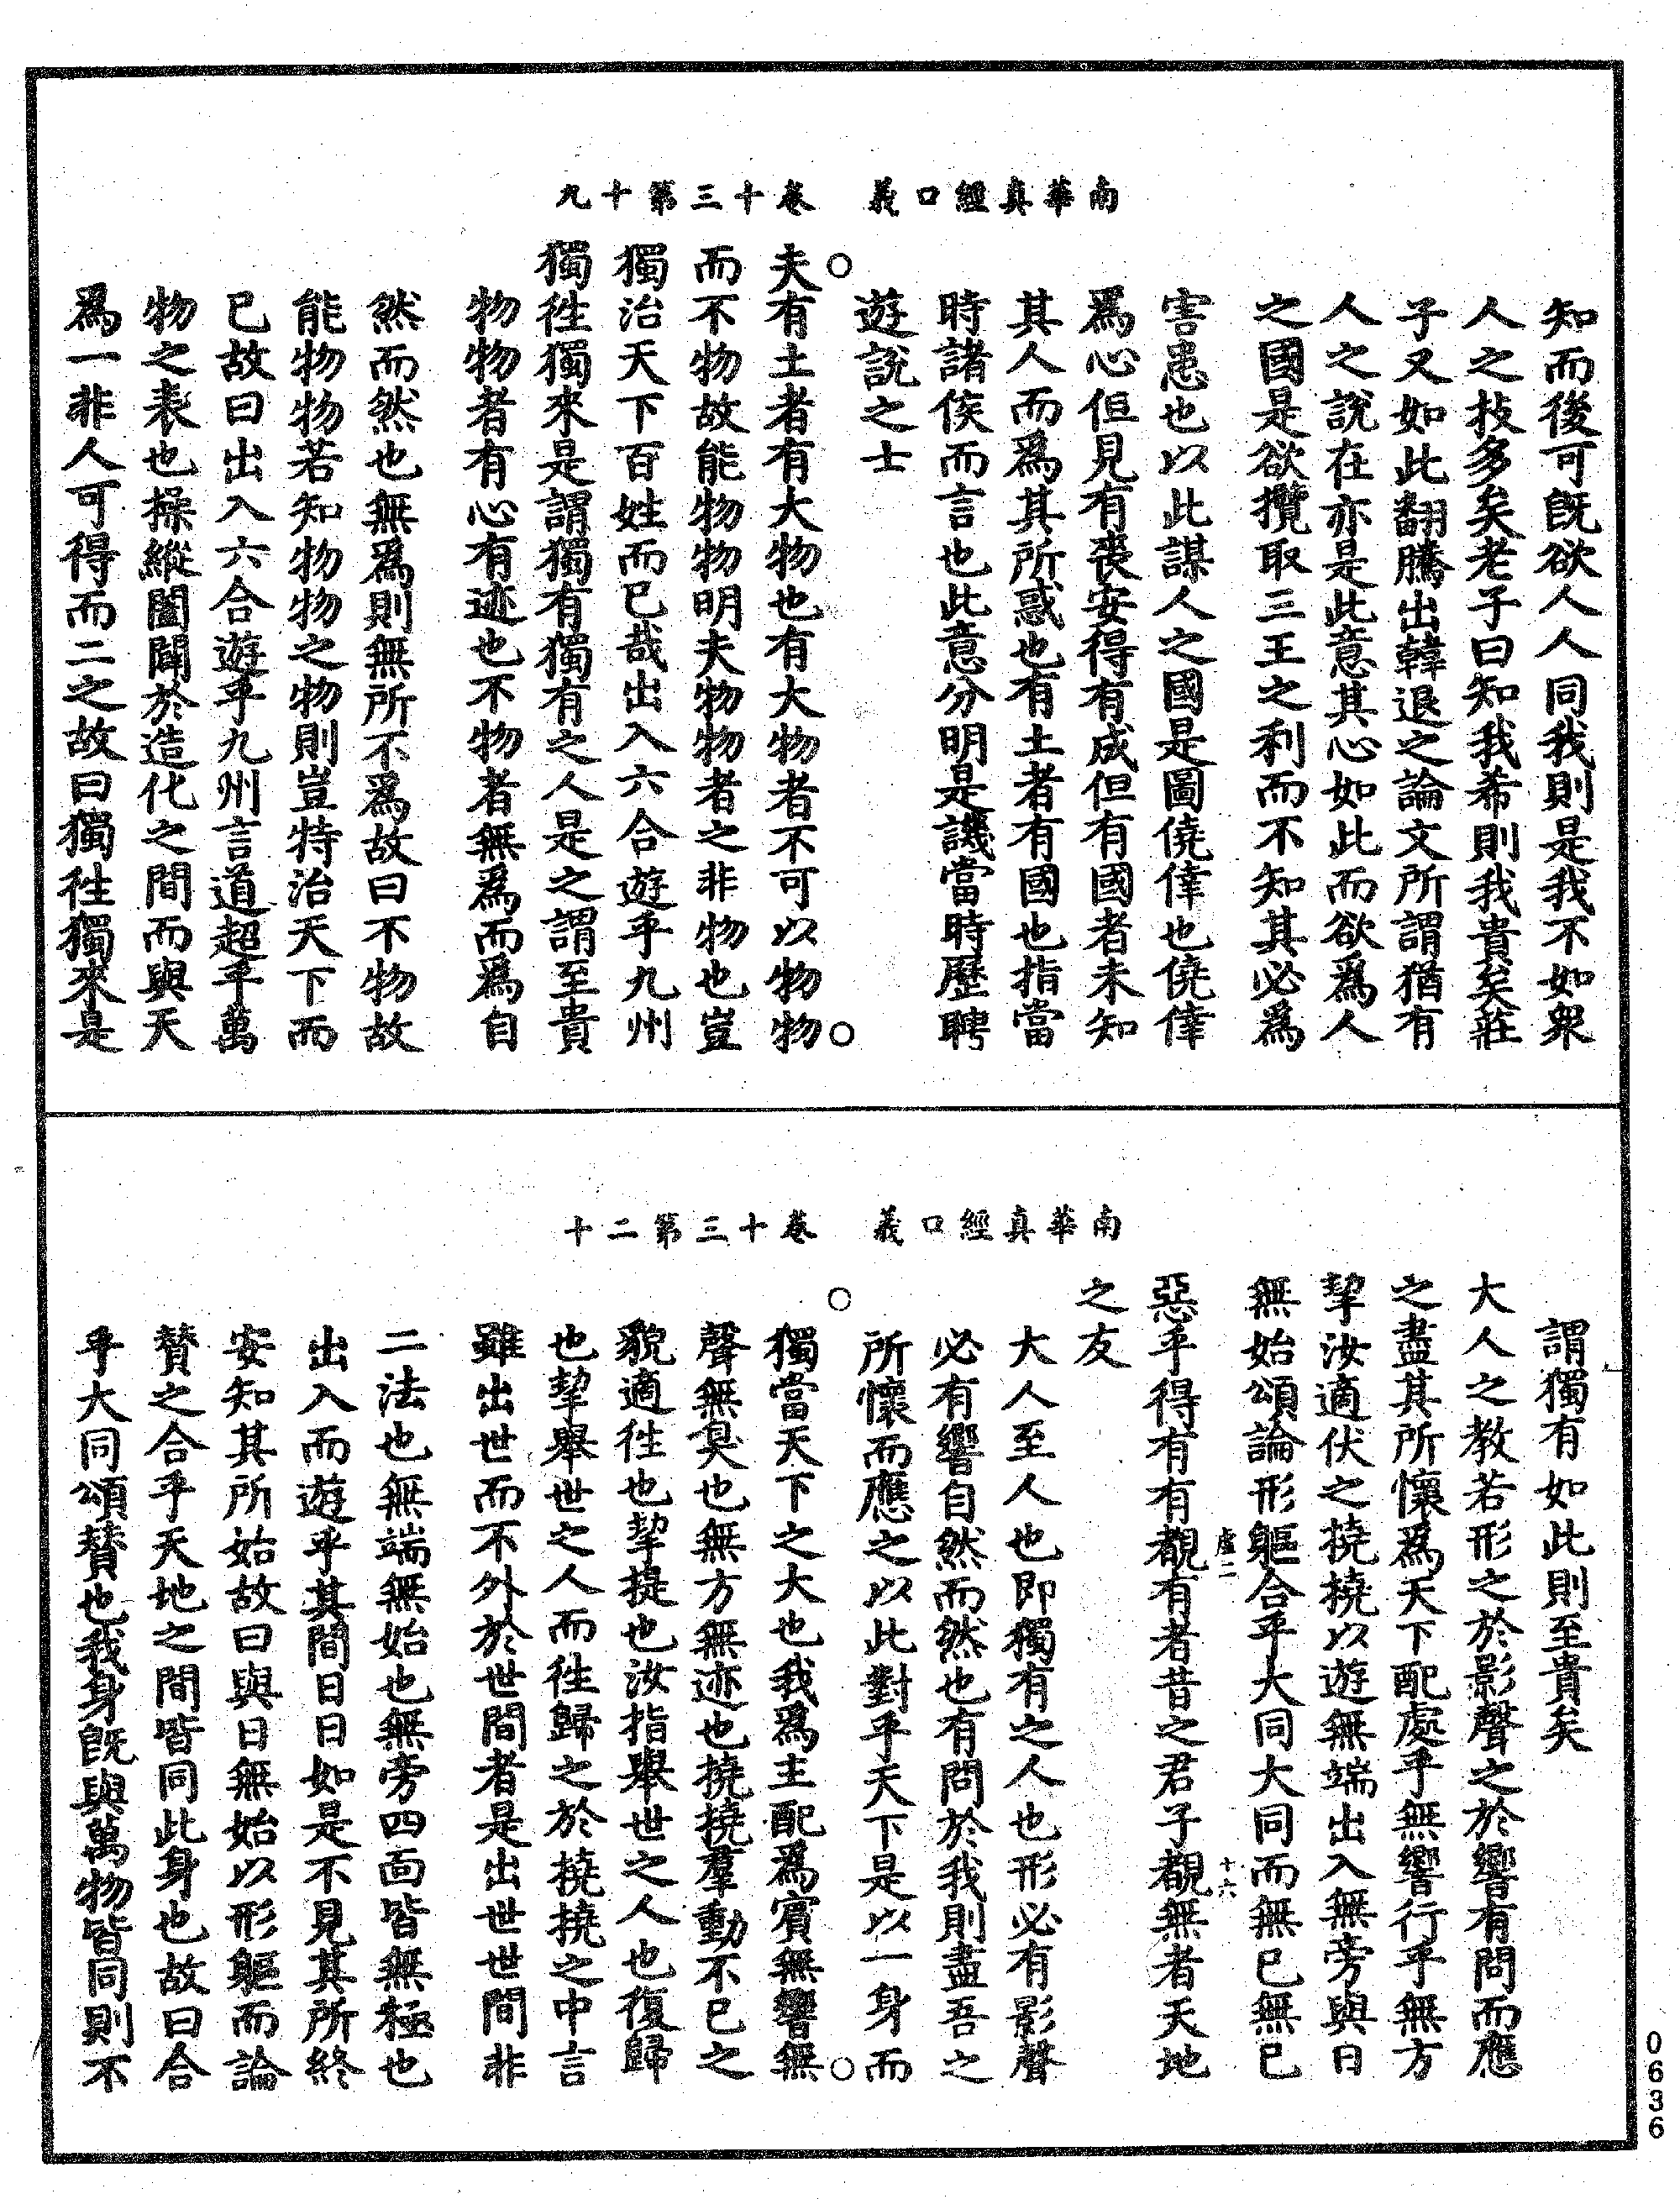 南華真經口義　卷十三第十九
知而後可旣欲人人同我則是我不如衆
人之技多矣老子曰知我希則我貴矣莊
子又如此翻騰出韓退之論文所謂猶有
人之說在亦是此意其心如此而欲爲人
之國是欲攬取三王之利而不知其必爲
害患也以此謀人之國是圖僥倖也僥倖
爲心但見有喪安得有成但有國者未知
其人而爲其所惑也有土者有國也指當
時諸侯而言也此意分明是譏當時歷聘
遊說之士
夫有土者有大物也有大物者不可以物物
而不物故能物物明夫物物者之非物也豈
獨治天下百姓而已哉出入六合遊乎九州
獨往獨來是謂獨有獨有之人是之謂至貴
物物者有心有迹也不物者無爲而爲自
然而然也無爲則無所不爲故曰不物故
能物物若知物物之物則豈特治天下而
已故曰出入六合遊乎九州言道超乎萬
物之表也操縱闔闢於造化之間而與天
爲一非人可得而二之故曰獨往獨來是
南華真經口義　卷十三第二十
謂獨有如此則至貴矣
大人之教若形之於影聲之於響有問而應
之盡其所懷爲天下配處乎無響行乎無方
挈汝適伏之撓撓以遊無端出入無旁與日
無始頌論形軀合乎大同大同而無已無已
盧二　十六
惡乎得有有覩有者昔之君子覩無者天地
之友
大人至人也即獨有之人也形必有影聲
必有響自然而然也有問於我則盡吾之
所懷而應之以此對乎天下是以一身而
獨當天下之大也我爲主配爲賓無響無
聲無臭也無方無迹也撓撓羣動不已之
貌適往也挈提也汝指舉世之人也復歸
也挈舉世之人而往歸之於撓撓之中言
雖出世而不外於世間者是出世世間非
二法也無端無始也無旁四面皆無極也
出入而遊乎其間日日如是不見其所終
安知其所始故曰與日無始以形軀而論
贊之合乎天地之間皆同此身也故曰合
乎大同頌贊也我身旣與萬物皆同則不
0636